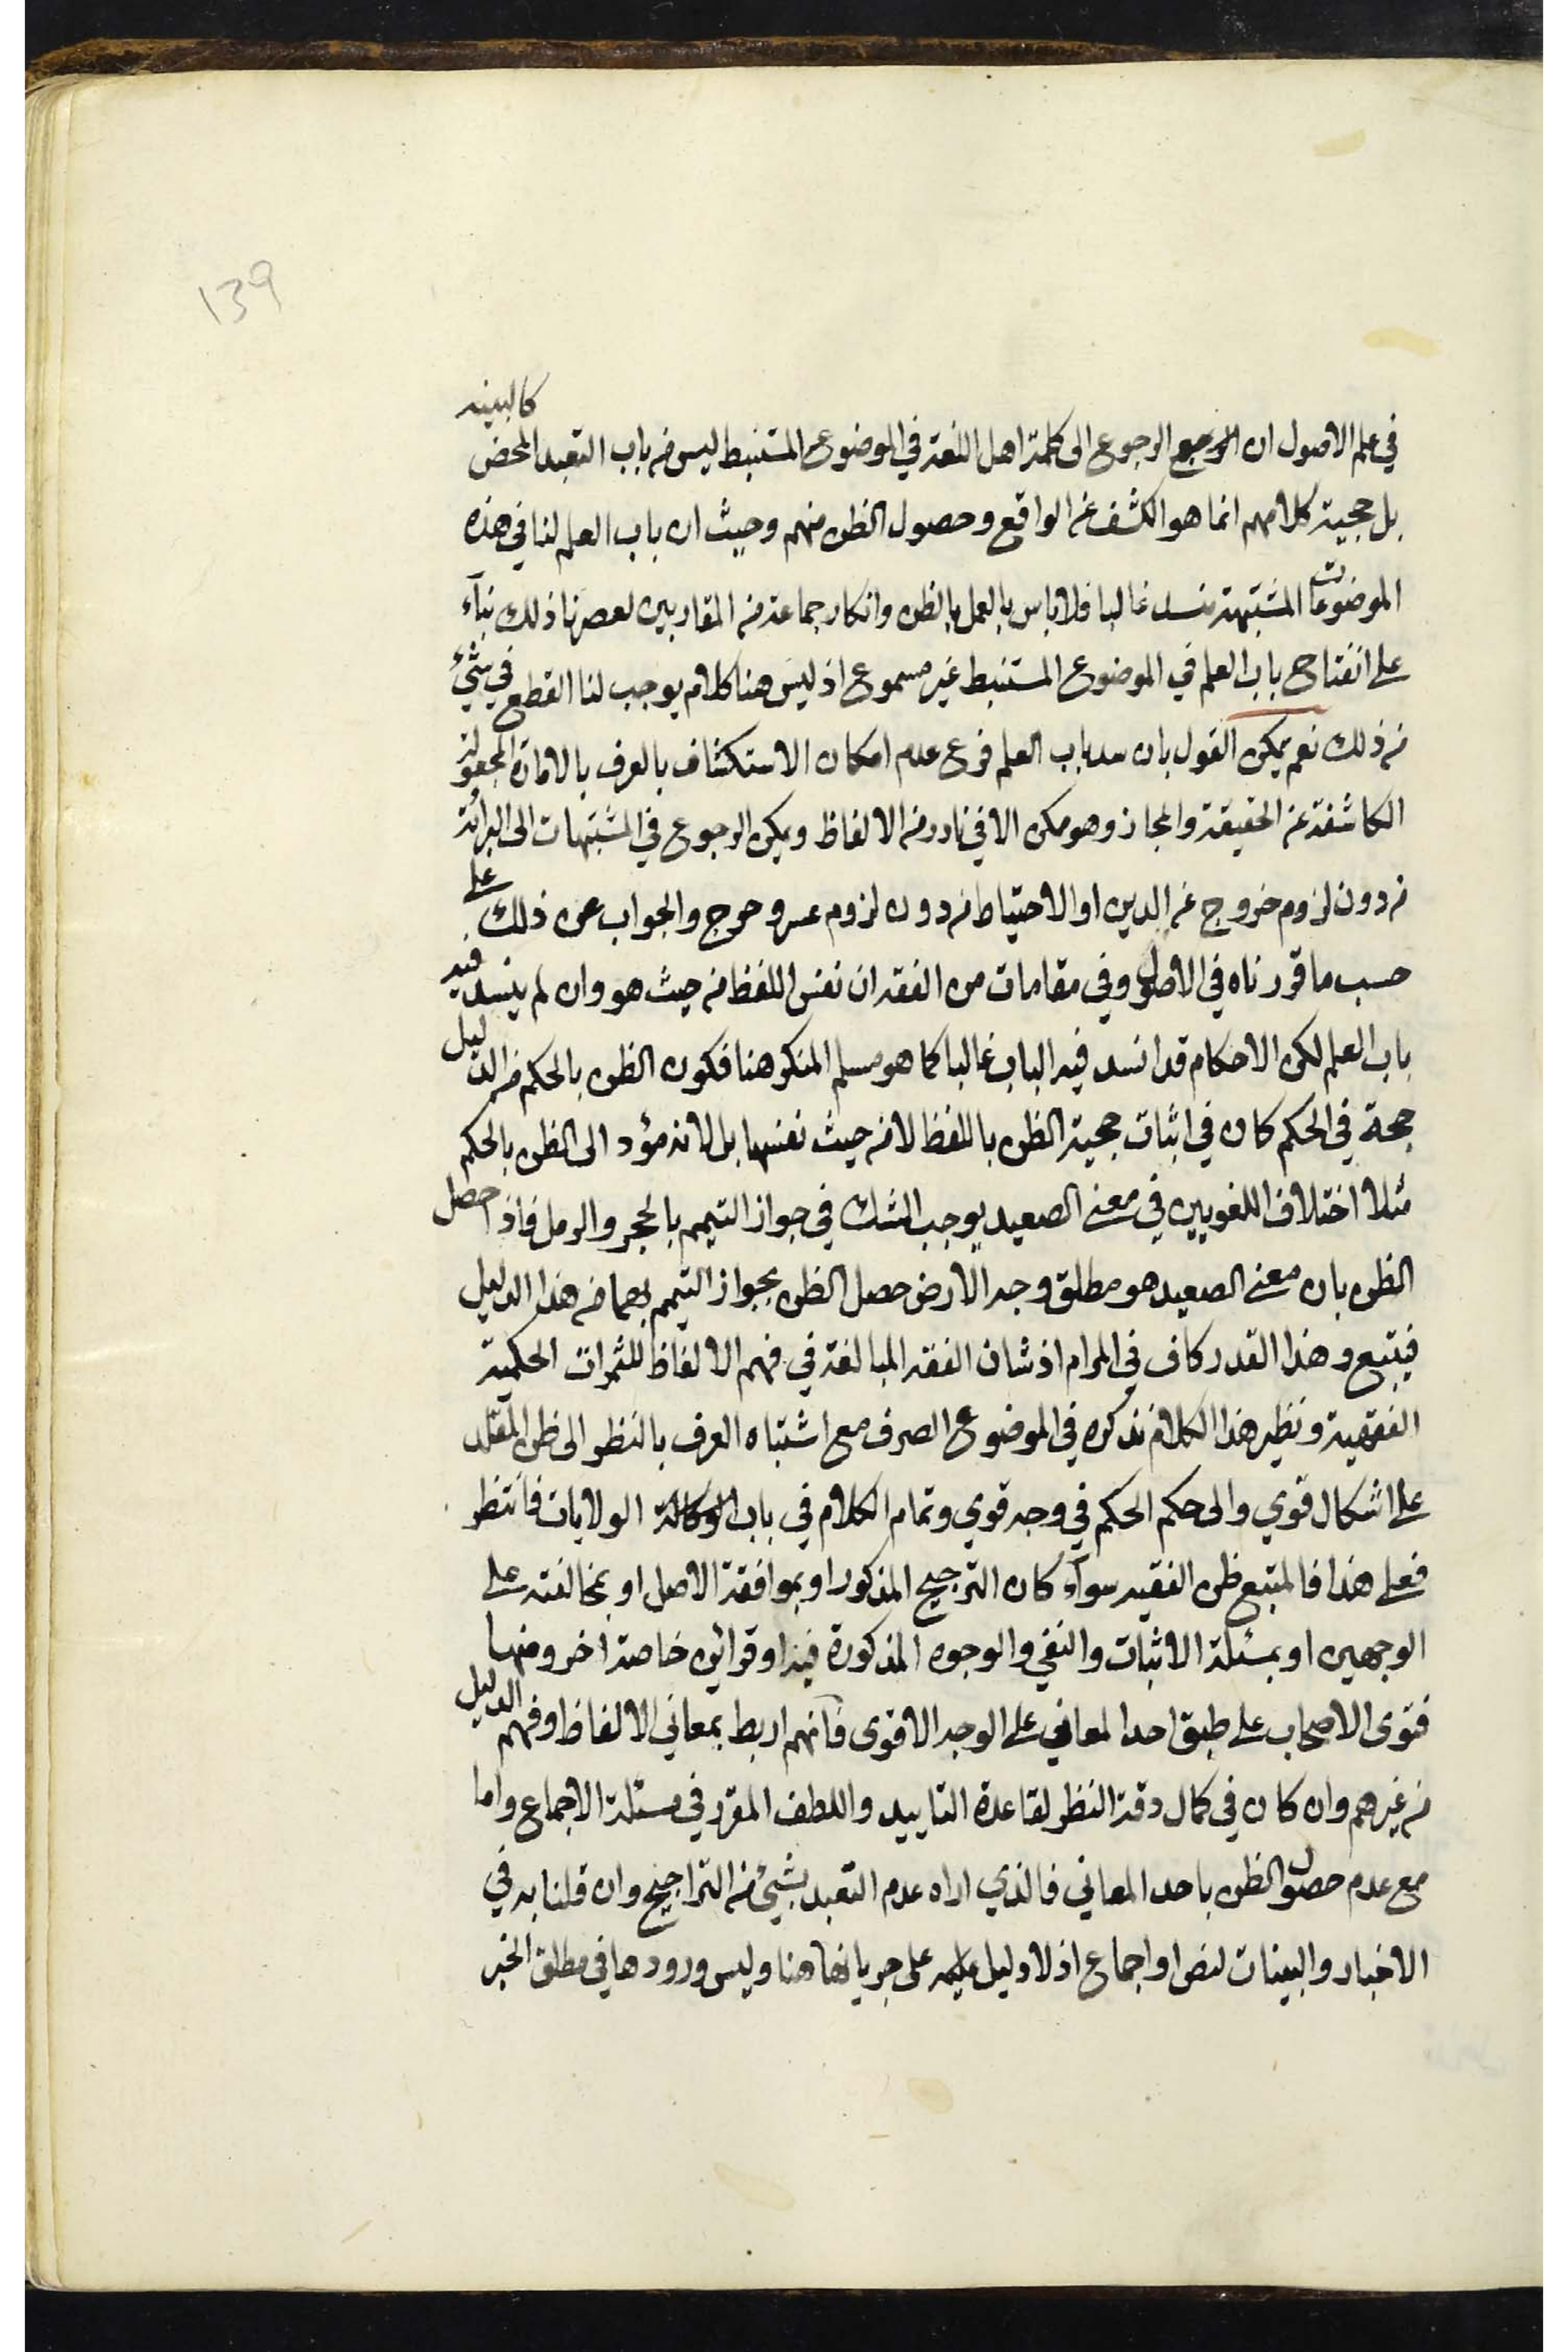 139
في علم الاصول ان الرجوع الى كلمة اهل اللغة في الموضوع المستنبط ليس من باب التعبد المحض كالبينة
بل حجية كلامهم انما هو الكشف عن الواقع وحصول الظن منهم وحيث ان باب العلم لنا في هذه
الموضوعات المشتبهة منسد غالبا فلا باس بالعمل بالظن وانكار جماعة من المقاربين لعصرنا ذلك بناء
على انفتاح باب العلم في الموضوع المستنبط غير مسموع اذ ليس هنا كلام يوجب لنا القطع في شيئ
من ذلك نعم يمكن القول بان سد باب العلم فرع عدم امكان الاستكشاف بالعرف بالامارة المجعولة
الكاشفة عن الحقيقة والمجاز وهو ممكن الا في نادر من الالفاظ ويمكن الرجوع في المشتبهات الى البرائة
من دون لزوم خروج عن الدين او الاحتياط من دون لزوم عسر وحرج والجواب عن ذلك على
حسب ما قررناه في الاصول وفي مقامات من الفقه ان نفس اللفظ من حيث هو وان لم ينسد فيه
باب العلم لكن الاحكام قد انسد فيه الباب غالبا كما هو مسلم المنكر هنا فكون الظن بالحكم من الدليل
حجة في الحكم كان في اثبات حجية الظن باللفظ لا من حيث نفسها بل لانه مؤد الى الظن بالحكم
مثلا اختلاف اللغويين في معنى الصعيد يوجب الشك في جواز التيمم بالحجر والرمل فاذا حصل
الظن بان معنى الصعيد هو مطلق وجه الارض حصل الظن بجواز التيمم بهما من هذا الدليل
فيتبع وهذا القدر كاف في المرام اذ شان الفقه المبالغة في فهم الالفاظ للثمرات الحكمية
الفقهية ونظير هذا الكلام نذكره في الموضوع الصرف مع اشتباه العرف بالنظر الى ظن المقلد
على اشكال قوي والى حكم الحكم في وجه قوي وتمام الكلام في باب الوكالة الولايات فانتظر
فعلى هذا فالمتبع ظن الفقيه سوآء كان الترجيح المذكور او بموافقة الاصل او بمخالفته على
الوجهين او بمسئلة الاثبات والنفي والوجوه المذكورة فيه او قرائن خاصة اخر ومنها
فتوى الاصحاب على طبق احد المعاني على الوجه الاقوى فانهم اربط بمعاني الالفاظ وفهم الدليل
من غيرهم وان كان في كمال دقة النظر لقاعدة التاييد واللطف المقرر في مسئلة الاجماع واما
مع عدم حصول الظن باحد المعاني فالذي اراه عدم التعبد بشيئ من التراجيح وان قلنا به في
الاخبار والبينات لنص او اجماع اذ لا دليل على جريانها هنا وليس ورودها في مطلق الخبر